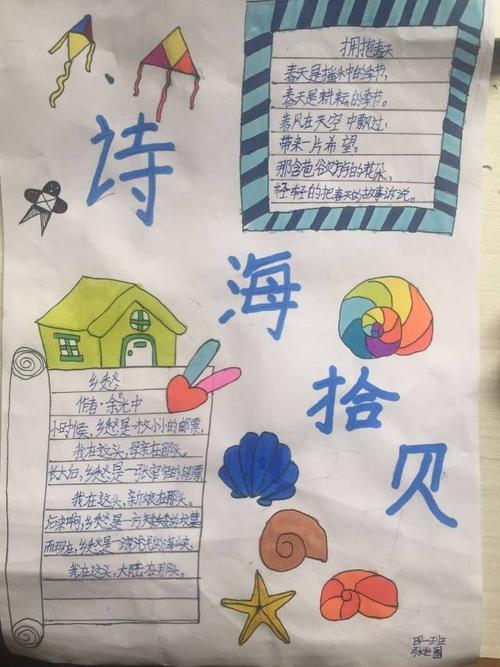 诗海拾贝
拥抱春天
春天是播种的季节,
春天是耕耘的季节。
春风在天空中飘过,
带来一片希望。
那含苞谷欠方的花朵,
轻轻的把春天的故事诉说。
乡愁
作者·余光中
小时候,乡愁是一枚小小的邮票,
我在这头,母亲在那头。
长大后,乡愁是一张窄窄的船票
我在这头,新娘在那头。
后来啊,乡愁是一方矮矮的坟墓
而现在,乡愁是一湾浅浅的海峡,
我在这头,大陆在那头。
四一班